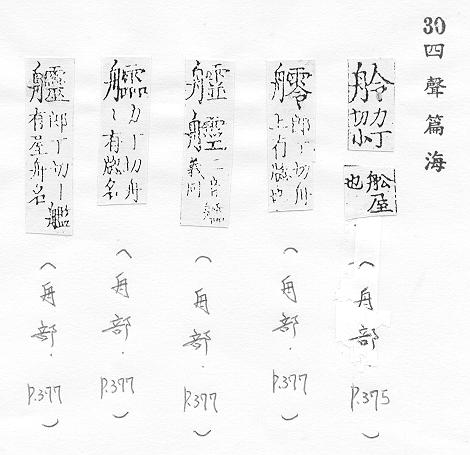 30四聲篇海
舲
力丁
切小
舩屋
也
(舟部.P.375)
郎丁切舟
上有牕也
(舟部.P.377)
義同
(舟部.P.377)
䑼
力丁切舟
上有牕名
(舟部.P.377)
郎丁切丨
有屋舟名
(舟部.P.377)